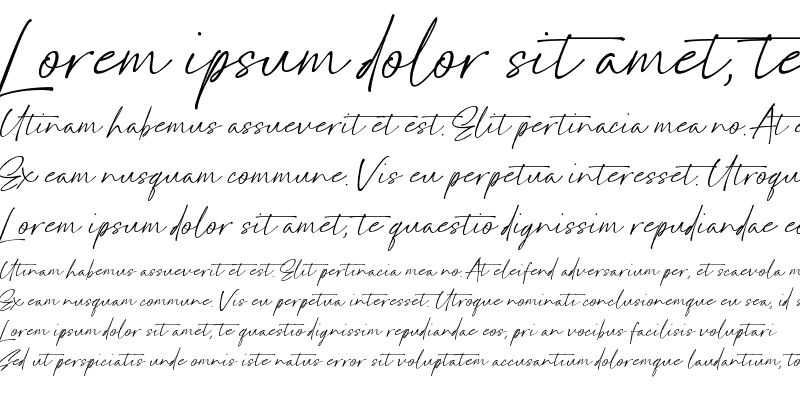 Lorem ipsum dolor sit amet, te
Utinam habemus assueverit et est. Elit pertinacia mea no. At
Ex eam nusquam commune. Vis eu perpetua interesset. Utroqu
Lorem ipsum dolor sit amet, te quaestio dignissim repudiandae eo
Utinam habemus assueverit et est. Elit pertinacia mea no. At eleifend adversarium per, et scaevola m
Ex eam nusquam commune. Vis eu perpetua interesset. Utroque nominati conclusionemque eu sea, id s
Lorem ipsum dolor sit amet, te quaestio dignissim repudiandae eos, pri an vocibus facilisis voluptari
Sed ut perspiciatis unde omnis iste natus error sit voluptatem accusantium doloremque laudantium, to